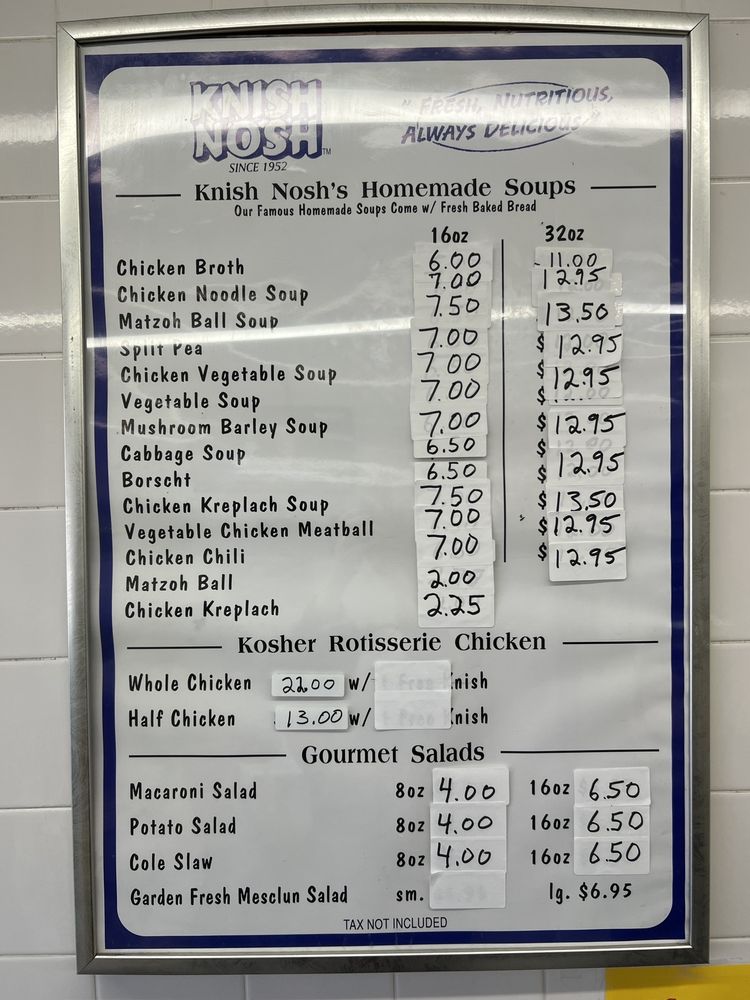 KNISH
NOSH TM
SINCE 1952
"FRESH, NUTRITIOUS,
ALWAYS DELICIOUS"
Knish Nosh's Homemade Soups
Our Famous Homemade Soups Come w/ Fresh Baked Bread
16oz 32oz
Chicken Broth 6.00 11.00
Chicken Noodle Soup 7.00 12.95
Matzoh Ball Soup 7.50 13.50
Split Pea 7.00 $ 12.95
Chicken Vegetable Soup 7.00 $ 12.95
Vegetable Soup 7.00 $
Mushroom Barley Soup 7.00 $ 12.95
Cabbage Soup 6.50 $
Borscht 6.50 $ 12.95
Chicken Kreplach Soup 7.50 $ 13.50
Vegetable Chicken Meatball 7.00 $ 12.95
Chicken Chili 7.00 $ 12.95
Matzoh Ball 2.00
Chicken Kreplach 2.25
Kosher Rotisserie Chicken
Whole Chicken 22.00 w/ Knish
Half Chicken 13.00 w/ Knish
Gourmet Salads
Macaroni Salad 8oz 4.00 16oz 6.50
Potato Salad 8oz 4.00 16oz 6.50
Cole Slaw 8oz 4.00 16oz 6.50
Garden Fresh Mesclun Salad sm. lg. $6.95
TAX NOT INCLUDED